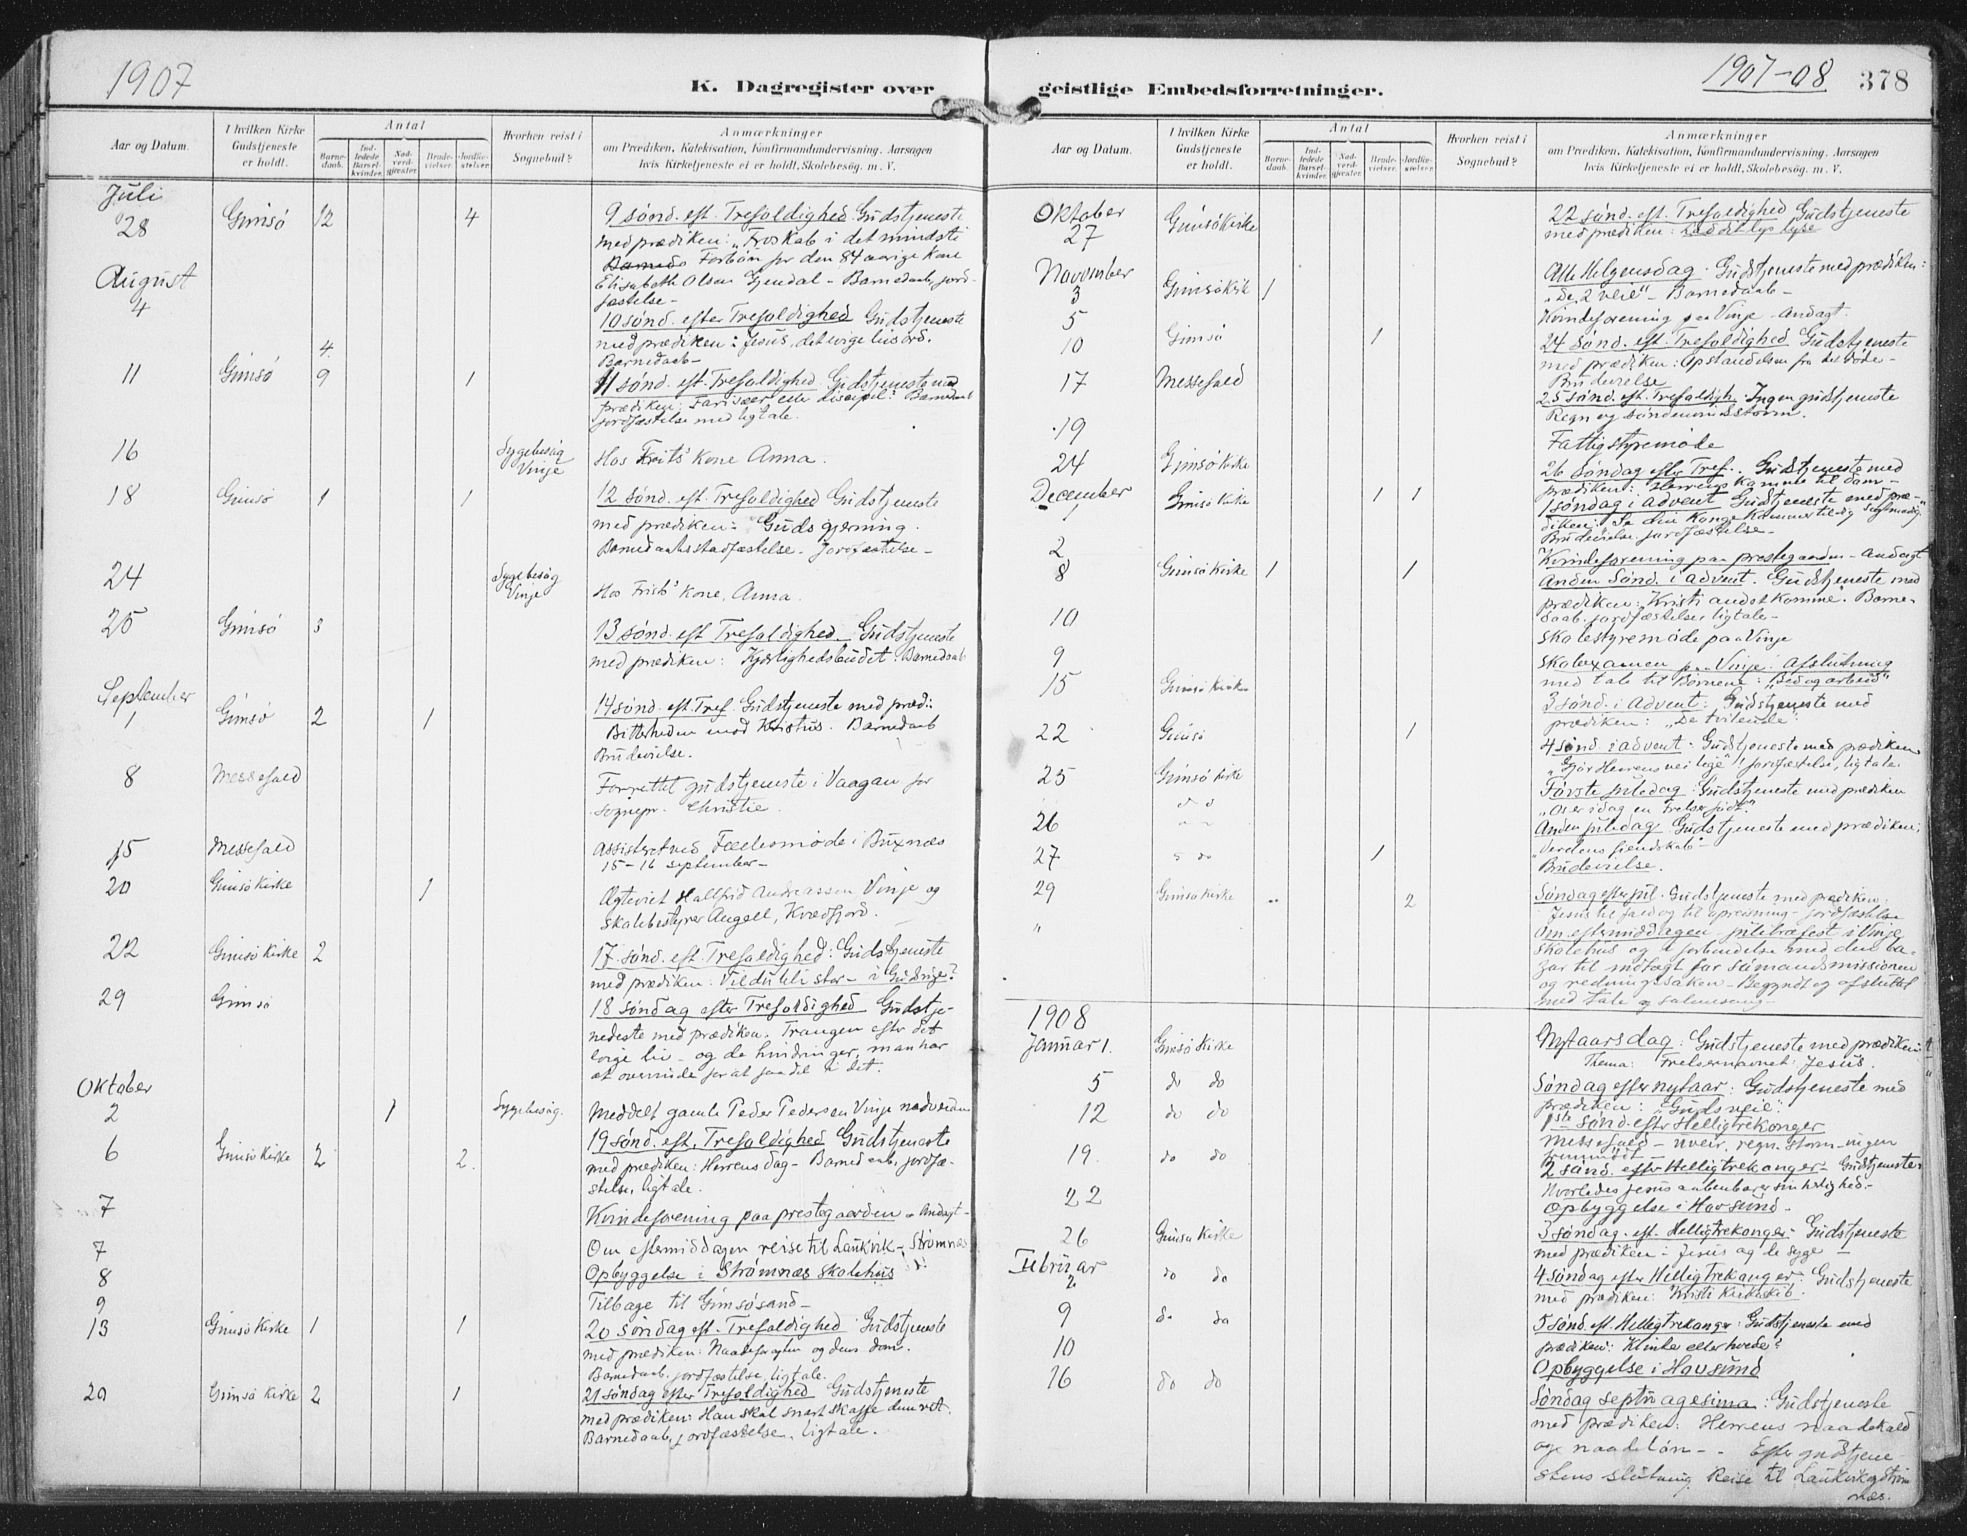 1907
K. Dagregister over
Aar og Datum.
I hvilken Kirke
Gudstjeneste
er holdt.
Antal
Barne-
daab.
Ind-
ledede
Barsel-
kvinder.
Nad-
verd-
gjæster.
Brude-
vielser.
Jordfæ-
stelser.
Hvorhen reist i
Sognebud?
Anmærkninger
om Prædiken, Katekisation, Konfirmandundervisning. Aarsagen
hvis Kirketjeneste ei er holdt, Skolebesøg. m. V.
Juli
28 Gimsø 12 4 9 sønd. eft. Trefoldighed Gudstjeneste
med prædiken: „Troskab i det mindste
Forbøn for den 84 aarige kone
Elisabeth Olsen Gjendal – Barnedaab, jord-
fæstelse –
August
4 4. 10 sønd. efter Trefoldighed Gudstjeneste
med prædiken: Jesus, det evige livs ord.
Barnedaab –
11 Gimsø 9 1 11 sønd. eft. Trefoldighed Gudstjeneste med
prædiken: Farisæer eller discipel? Barnedaab
jordfæstelse med ligtale.
16 Sygebesøg
Vinje Hos Frits' kone Anna.
18 Gimsø 1 1 12 sønd. eft. Trefoldighed Gudstjeneste
med prædiken: Guds gjerning.
Barnedaabsstadfæstelse. Jordfæstelse –
24 Sygebesøg
Vinje Hos Frits' kone, Anna.
25 Gimsø 3 13 sønd. eft Trefoldighed. Gudstjeneste
med prædiken: Kjærlighedsbudet: Barnedaab
September
1 Gimsø 2 1 14 sønd. eft. Tref. Gudstjeneste med præd.:
Bitterheden mod Kristus. Barnedaab
Brudevielse.
8 Messefald Forrettet gudstjeneste i Vaagan for
sognepr. Christie.
15 Messefald Assisteret ved Fællesmøde i Buxnæs
15–16 september –
20 Gimsø Kirke 1 Ægteviet Hallfrid Andreassen Vinje og
skolebestyrer Angell, Kvædfjord.
22 Gimsø Kirke 2 17. sønd. eft. Trefoldighed: Gudstjeneste
med prædiken: Vil du bli stor – i Gudsrige?
29 Gimsø 18 søndag efter Trefoldighed Gudstje-
nedeste med prædiken. Trangen efter det
evige liv – og de hindringer, man har
at overvinde for at faa del i det.
Oktober
2 1 Sygebesøg. Meddelt gamle Peder Pedersen Vinje nadveren
6 Gimsø Kirke 2 2. 19 sønd. eft. Trefoldighed Gudstjeneste
med prædiken: Herrens dag – Barnedaab, jordfæ-
stelse, ligtale.
7 Kvindeforening paa prestegaarden – Andagt –
7 Om eftermiddagen reise til Laukvik – Strømnæs
8 Opbyggelse i Strømnæs skolehus
9 Tilbage til Gimsøsand –
13 Gimsø Kirke 1 1 20 søndag eft. Trefoldighed Gudstjeneste
med prædiken: Naadeforagten og dens dom.
Barnedaab. jordfæstelse, ligtale.
20 Gimsø Kirke 2 1 21 søndag efter Trefoldighed Gudstjeneste
med prædiken: Han skal snart skaffe dem ret.
Barnedaab, jordfæstelse. ligtale.
1907–08 378
geistlige Embedsforretninger.
Aar og Datum.
I hvilken Kirke
Gudstjeneste
er holdt.
Antal
Barne-
daab.
Ind-
ledede
Barsel-
kvinder.
Nad-
verd-
gjæster.
Brude-
vielser.
Jordfæ-
stelser.
Hvorhen reist i
Sognebud?
Anmærkninger
om Prædiken, Katekisation, Konfirmandundervisning. Aarsagen
hvis Kirketjeneste ei er holdt, Skolebesøg. m. V.
Oktober
27 Gimsø Kirke 22 sønd. eft. Trefoldighed Gudstjeneste
med prædiken: Lad det lys lyse
November
3 Gimsø Kirk 1 Alle Helgensdag. Gudstjeneste med prædiken:
„De 2 veie" – Barnedaab –
5 Kvindeforening paa Vinje – Andagt.
10 Gimsø 1 24 sønd. eft. Trefoldighed Gudstjeneste
med prædiken: Opstandelsen fra det døde –
Brudevielse
17 Messefald 25 sønd. eft. Trefoldigh. Ingen gudstjeneste
Regn og søndenvindsstorm.
19 Fattigstyremøde
24 Gimsø Kirke 26 Søndag efter Tref. Gudstjeneste med
prædiken: Herrens komme til dom –
December
1 Gimsø Kirke 1 1 1 søndag i advent Gudstjeneste med præ-
diken: „Se din Konge kommer til dig sagtmodig"
Brudevielse jordfæstelse –
2 Kvindeforening paa prestegaarden – Andagt
8 Gimsø Kirke 1 1 Anden Sønd. i advent. Gudstjeneste med
prædiken: „Kristi andet komme". Barne-
daab. jordfæstelse, ligtale –
10 Skolestyremøde paa Vinje
9 Skolexamen paa Vinje: Afslutning
med tale til Børnene: „Bed og arbeid"
15 Gimsø Kirke 3 sønd. i Advent: Gudstjeneste med
prædiken: „De tvilende".
22 Gimsø 1 4 sønd. i advent: Gudstjeneste med prædiken
„Gjør Herrens vei lige"! jordfæstelse, ligtale.
25 Gimsø Kirke Første juledag: Gudstjeneste med prædiken
„Os er idag en Frelser født"
26 Anden juledag Gudstjeneste med prædiken:
„Verdens fiendskab" –
27 do 1 Brudevielse.
29 Gimsø Kirke 2 Søndag efter jul. Gudstjeneste med prædiken:
Jesus til fald og til opreisning – jordfæstelse
" Om eftermiddagen juletræfest i Vinje
skolehus og i forbindelse med den ba-
zar til indtægt for sømandsmissionen
og redningssaken. – Begyndt og afsluttet
med tale og salmesang –
1908
Januar 1. Gimsø Kirke Nytaarsdag: Gudstjeneste med prædiken:
Thema: Frelsernavnet Jesus.
5 do do Søndag efter nytaar: Gudstjeneste med
prædiken: „Guds veie".
12 do do 1ste sønd. efter Helligtrekonger
Messefald – uveir, regn, storm – ingen
fremmødt –
19. do do 2 sønd. efter Helligtrekonger – Gudstjeneste:
Hvorledes Jesus aabenbarer sin herlighed. –
22 Opbyggelse i Hovsund –
26 Gimsø Kirke 3 søndag. eft. Helligtrekonger – Gudstjeneste
med prædiken: Jesus og de syge –
Februar
2 do do 4 søndag efter Helligtrekonger: Gudstjeneste
med prædiken: Kristi Kirkeskib.
9 do do 5 sønd. eft. Helligtrekonger: Gudstjeneste med
prædiken: Klinte eller hvede?
10 Opbyggelse i Hovsund
16 do do Søndag septuagesima: Gudstjeneste
med prædiken: Herrens naadekald
og naadeløn – – Efter gudstjene
stens slutning Reise til Laukvik og Strøm
næs.